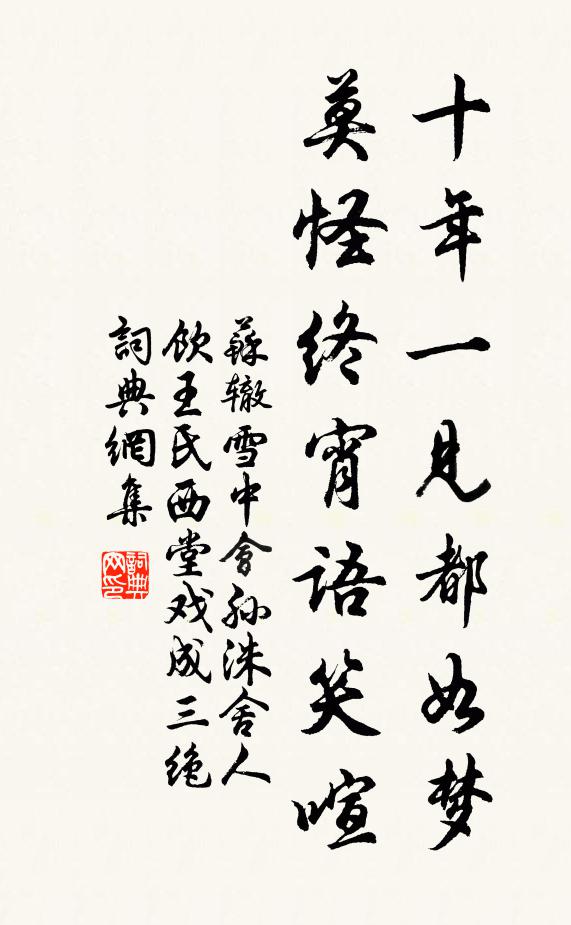 十年一見都如梦
莫怪终宵語笑喧
蘇辙雪中會孙洙舍人
飲王氏西堂戏成三绝
詞典網集
詞典
网印